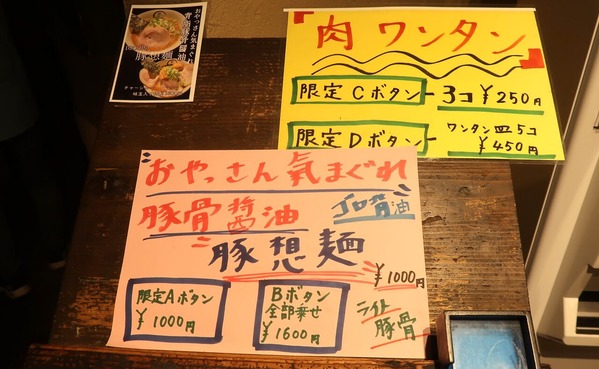 おやっさん気まぐれ
豚想麺
肉ワンタン
限定Cボタン 3コ ¥250円
限定Dボタン ワンタン皿5コ
¥450円
おやっさん気まぐれ
豚骨醤油
豚想麺
¥1000円
限定Aボタン
¥1000円
Bボタン
全部乗せ
¥1600円
ライト
豚骨